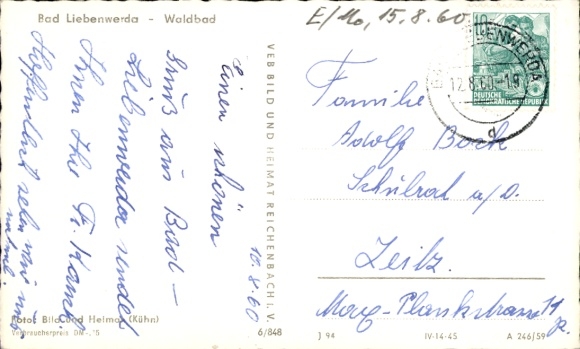 Bad Liebenwerda - Waldbad
E/Mo, 15.8.60
10.8.60
Einen schönen
Gruß aus Bad-
Liebenwerda sendet
Ihnen Ihr Fr.
Hoffentlich sehen wir uns
mal
Foto: Bild und Heimat (Kühn)
Verbraucherpreis DM -,15
6/848
VEB BILD UND HEIMAT REICHENBACH I. V.
10
DEUTSCHE
DEMOKRATISCHE REPUBLIK
LIEBENWERDA
12.8.60-19
d
Familie
Adolf Bock
Schulrat a/D.
Zeitz.
Max-Plankstrasse 11
J 94
IV-14-45
A 246/59